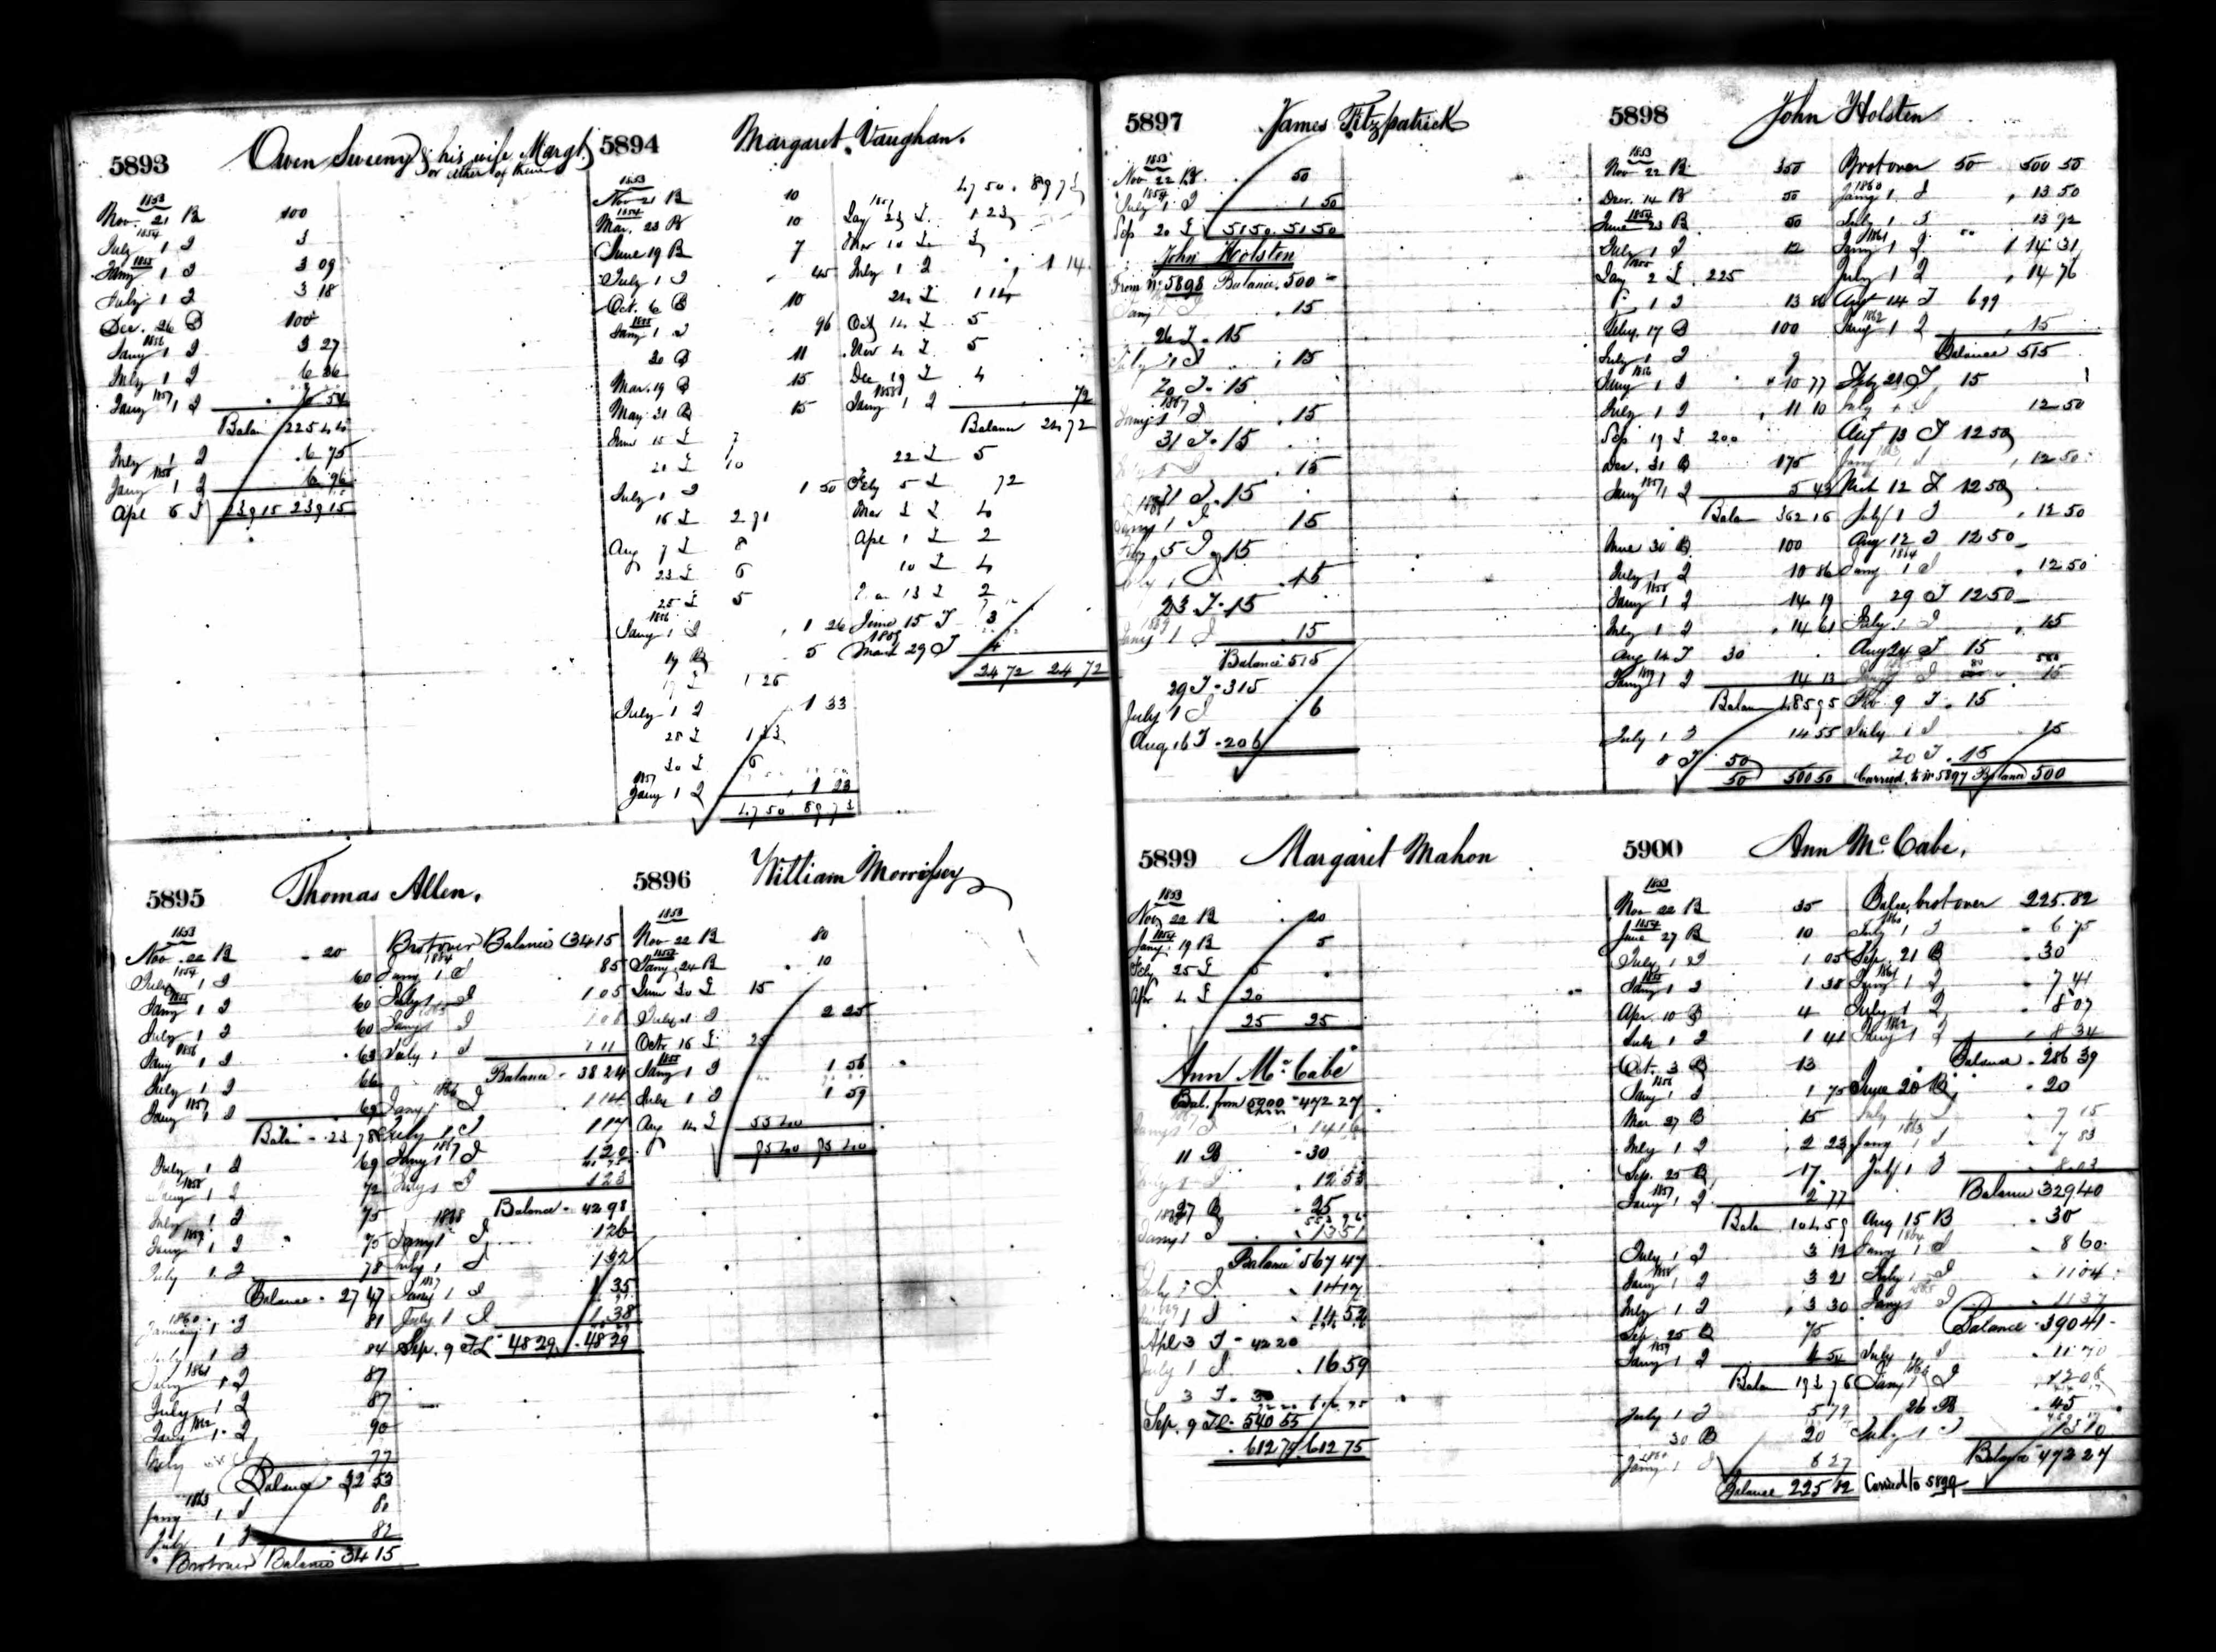 5893 Owen Sweeny & his wife Margt.
or either of them
1853
Nov. 21 B 100
1854
July 1 I 3
1855
Jany 1 I 3 09
July 1 I 3 18
Dec. 26 B 100
1856
Jany 1 I 3 27
July 1 I 6 36
1857
Jany 1 I 6 54
Balan 225 44
July 1 I 6 75
1858
Jany 1 I 6 96
Apl 6 239 15 239 15
5894 Margaret Vaughan.
1853
Nov 21 B 10
1854
Mar. 23 B 10
June 19 B 7
July 1 I 45
Oct. 6 B 10
1855
Jany 1 I 96
20 B 11
Mar. 19 B 15
May 31 B 15
June 15 7
21 10
July 1 I 1 50
16
Aug 7 8
23 6
25 5
1856
Jany 1 I 1 26
19 B 5
17 1 26
July 1 I 1 33
28 1 33
30 6
1857
Jany 1 I 1 23
47 50 89 73
47 50 89 73
1857
Jany 23 1 23
Mar 10
July 1 I 1 14
24 1 14
Oct 14 5
Nov 4 5
Dec 19 4
1858
Jany 1 I 72
Balance 24 72
22 5
Feby 5 72
Mar 3 4
Apl 1 2
10 4
13 2
June 15 3
1859
March 29 4
24 72 24 72
5895 Thomas Allen.
1853
Nov. 22 B 20
1854
July 1 I 60
1855
Jany 1 I 60
July 1 I 60
1856
Jany 1 I 63
July 1 I 66
1857
Jany 1 I 69
Balan 23 78
July 1 I 69
1858
Jany 1 I 72
July 1 I 75
1859
Jany 1 I 75
July 1 I 78
Balance 27 47
1860
January 1 I 81
July 1 I 84
1861
Jany 1 I 87
July 1 I 87
1862
Jany 1 I 90
July 77
Balance 32 53
1863
Jany 1 I 80
July 1 I 82
Brotover Balance 34 15
Brotover Balance 34 15
1864
Jany 1 I 85
July 1 I 1 05
Jany 1 I 1 08
July 1 I 1 11
Balance 38 24
1866
Jany 1 I 1 14
July 1 I 1 17
1867
Jany 1 I 1 20
July 1 I 1 23
Balance 42 98
1868
Jany 1 I 1 26
July 1 I 1 32
Jany 1 I 1 35
July 1 I 1 38
Sep. 9 48 29 48 29
5896 William Morrissey
1853
Nov 22 B 80
1854
Jany 24 B 10
June 30 15
July 1 I 2 25
Octr 16 25
1855
Jany 1 I 1 56
July 1 I 1 59
Aug 14 55 40
95 40 95 40
5897 James Fitzpatrick
1853
Nov 22 B 50
1854
July 1 I 1 50
Sep 20 51 50 51 50
John Holsten
From No. 5898 Balance 500
Jany 1 I 15
26 15
July 1 I 15
20 15
1867
Jany 1 I 15
31 15
July 1 I 15
31 15
1868
Jany 1 I 15
Feby 5 15
July 1 I 15
23 15
1869
Jany 1 I 15
Balance 515
29 315
July 1 I 6
Aug 16 206
5898 John Holsten
1853
Nov 22 B 350
Decr. 14 B 50
1854
June 23 B 50
July 1 I 12
1855
Jany 2 225
1 I 13 86
Feby. 17 B 100
July 1 I 9
1856
Jany 1 I 10 77
July 1 I 11 10
Sep 19 200
Dec. 31 B 175
1857
Jany 1 I 5 43
Balan 362 16
June 30 B 100
July 1 I 10 86
1858
Jany 1 I 14 19
July 1 I 14 61
Aug 14 30
1859
Jany 1 I 14 13
Balan 485 95
July 1 I 14 55
8 50
50 500 50
Brotover 50 500 50
1860
Jany 1 I 13 50
July 1 I 13 92
1861
Jany 1 I 14 31
July 1 I 14 76
Augt 14 6 99
1862
Jany 1 I 15
Balance 515
July 21 15
July 1 I 12 50
Augt 13 12 50
Jany 1 I 12 50
Mch 12 12 50
July 1 I 12 50
Aug 12 12 50
1864
Jany 1 I 12 50
29 12 50
July 1 I 15
Aug 24 15
Jany 1 I 15
Feb 9 15
July 1 I 15
20 15
Carried to No 5897 Balance 500
5899 Margaret Mahon
1853
Nov 22 B 20
1854
Jany. 19 B 5
Feby 25 5
Apr 4 20
25 25
Ann McCabe
Bal. from 5900 472 27
Jany 1 I 14 16
11 B 30
July 1 I 12 53
27 B 25
1868
Jany 1 I 13 51
Balance 567 47
July 1 I 14 17
Jany 1 I 14 52
Apl 3 42 20
July 1 I 16 59
3 30
Sep. 9 540 55
612 75 612 75
5900 Ann McCabe.
1853
Nov 22 B 35
1854
June 27 B 10
July 1 I 1 05
1855
Jany 1 I 1 38
Apr. 10 B 4
July 1 I 1 41
Oct. 3 B 13
1856
Jany 1 I 1 75
Mar 27 B 15
July 1 I 2 23
Sep. 25 B 17
1857
Jany 1 I 2 77
Balan 104 59
July 1 I 3 12
1858
Jany 1 I 3 21
July 1 I 3 30
Sep. 25 B 75
1859
Jany 1 I 4 54
Balan 193 76
July 1 I 5 79
30 B 20
1860
Jany 1 I 6 27
Balance 225 82
Balce. brotover 225.82
1860
July 1 I 6 75
Sep. 21 B 30
1861
Jany 1 I 7 41
July 1 I 8 07
1862
Jany 1 I 8 34
Balance 286 39
June 20 B 20
July 1 I 7 15
1863
Jany 1 I 7 83
July 1 I 8 03
Balance 329 40
Aug 15 B 30
1864
Jany 1 I 8 60
July 1 I 11 04
Jany 1 I 11 37
Balance 390 41
July 1 I 11 70
1866
Jany 1 I 12 06
26 B 45
July 1 I 13 10
Balance 472 27
Carried to 5899